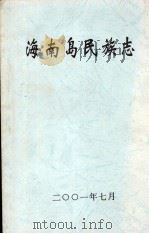 海南岛民族志
二〇〇一年七月
www.toutianshu.com